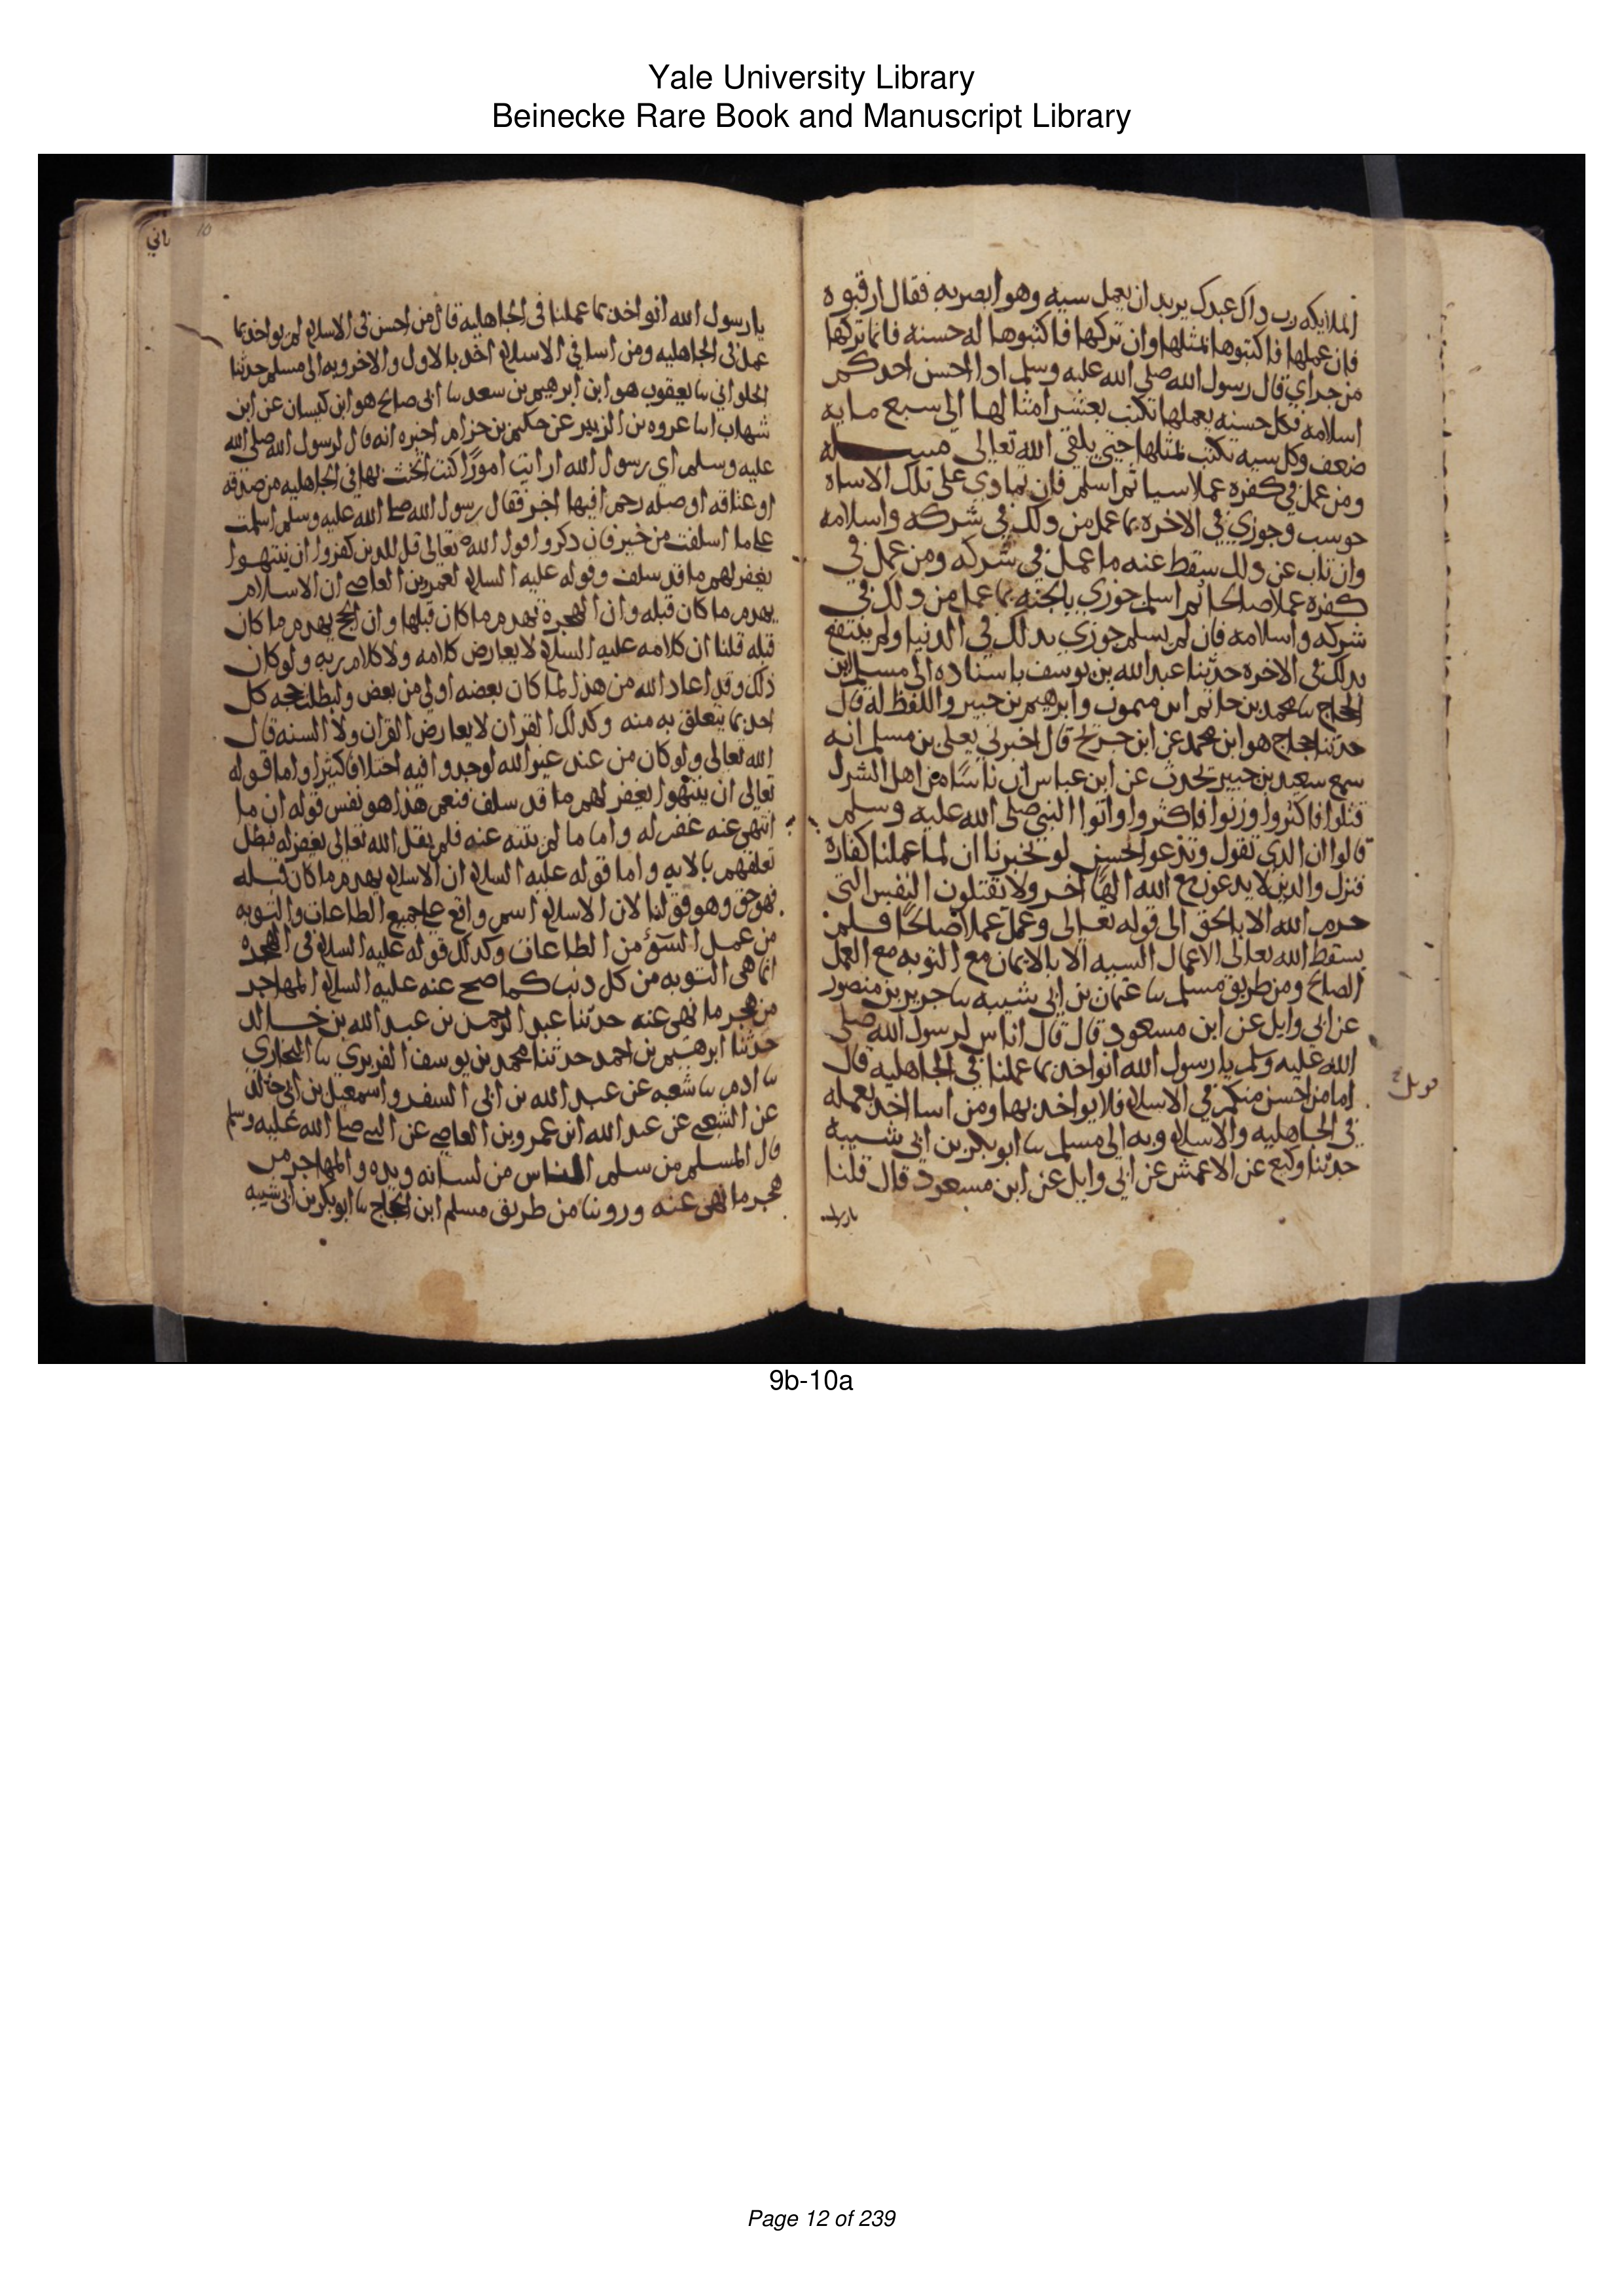 Yale University Library
Beinecke Rare Book and Manuscript Library
الملايكه رب داك عبدك يريد ان يعمل سيه وهو ابصر به فقال ارقبوه
فان عملها فاكتبوها بمثلها وان تركها فاكتبوها له حسنه فانما تركها
من جراي قال رسول الله صلى الله عليه وسلم ادا احسن احدكم
اسلامه فكل حسنه يعملها تكتب بعشر امثالها الى سبع مايه
ضعف وكل سيه تكتب بمثلها حتى يلقى الله تعالى مسله
ومن عمل في كفره عملا سيا ثم اسلم فان تمادي على تلك الاساه
حوسب وجوزي في الاخره بما عمل من دلك في شركه واسلامه
وان تاب عن دلك سقط عنه ما عمل في شركه ومن عمل في
كفره عملا صالحا ثم اسلم جوزي بالجنه بما عمل من دلك في
شركه واسلامه فان لم يسلم جوزي بدلك في الدنيا ولم ينتفع
بدلك في الاخره حدثنا عبد الله بن يوسف باسناده الى مسلم ابن
الحجاج نا محمد بن حاتم ابن ميمون وابرهيم بن جبير واللفظ له قال
حدثنا حجاج هو ابن محمد عن ابن جريج قال اخبرني يعلى بن مسلم انه
سمع سعيد بن جبير يحدث عن ابن عباس ان ناسا من اهل الشرك
قتلوا فاكثروا وزنوا فاكثروا واتوا النبي صلى الله عليه وسلم
قالوا ان الدي تقول وتدعو لحسن لو تخبرنا ان لما عملنا كفاره
فنزل والدين لا يدعون مع الله الها اخر ولا يقتلون النفس التي
حرم الله الا بالحق الى قوله تعالى وعمل عملا صالحا فلم
يسقط الله تعالى الاعمال السيه الا بالايمان مع التوبه مع العمل
الصالح ومن طريق مسلم نا عثمان بن ابي شيبه نا جرير بن منصور
عن ابي وايل عن ابن مسعود قال قال اناس لرسول الله صلى
الله عليه وسلم يا رسول الله انواخد بما عملنا في الجاهليه قال
اما من احسن منكم في الاسلام فلا يواخد بها ومن اسا اخد بعمله
في الجاهليه والاسلام وبه الى مسلم نا ابو بكر بن ابي شيبه
حدثنا وكيع عن الاعمش عن ابي وايل عن ابن مسعود قال قلنا
10
يا رسول الله انواخد بما عملنا في الجاهليه قال من احسن في الاسلام لم يواخد بما
عمل في الجاهليه ومن اسا في الاسلام اخد بالاول والاخر وبه الى مسلم حدثنا
الحلواني نا يعقوب هو ابن ابرهيم بن سعد نا ابي صالح هو ابن كيسان عن ابن
شهاب انا عروه بن الزبير عن حكيم بن حزام اخبره انه قال لرسول الله صلى الله
عليه وسلم اي رسول الله ارايت امورا كنت اتحنث بها في الجاهليه من صدقه
او عتاقه او صله رحم افيها اجر فقال رسول الله صلى الله عليه وسلم اسلمت
على ما اسلفت من خير فان دكروا قول الله تعالى قل للدين كفروا ان ينتهوا
يغفر لهم ما قد سلف وقوله عليه السلام لعمرو بن العاصي ان الاسلام
يهدم ما كان قبله وان الهجره تهدم ما كان قبلها وان الحج يهدم ما كان
قبله قلنا ان كلامه عليه السلام لا يعارض كلامه ولا كلام ربه ولو كان
دلك وقد اعاد الله من هذا لما كان بعضه اولى من بعض ولبطلت حجه كل
احد بما يتعلق به منه وكدلك القران لا يعارض القران ولا السنه قال
الله تعالى ولو كان من عند غير الله لوجدوا فيه اختلافا كثيرا واما قوله
تعالى ان ينتهوا يغفر لهم ما قد سلف فنعم هذا هو نفس قوله ان ما
انتهى عنه غفر له واما ما لم ينته عنه فلم يقل الله تعالى يغفر له فبطل
تعلقهم بالايه واما قوله عليه السلام ان الاسلام يهدم ما كان قبله
فهو حق وهو قولنا لان الاسلام اسم واقع على جميع الطاعات والتوبه
من عمل السوء من الطاعات وكدلك قوله عليه السلام في الهجره
انما هي التوبه من كل دنب كما صح عنه عليه السلام المهاجر
من هجر ما نهى عنه حدثنا عبد الرحمن بن عبد الله بن خالد
حدثنا ابرهيم بن احمد حدثنا محمد بن يوسف الفربري نا البخاري
نا ادم نا شعبه عن عبد الله بن ابي السفر واسمعيل بن ابي خالد
عن الشعبي عن عبد الله ابن عمرو بن العاصي عن النبي صلى الله عليه وسلم
قال المسلم من سلم الناس من لسانه ويده والمهاجر من
هجر ما نهى عنه وروينا من طريق مسلم ابن الحجاج نا ابو بكر بن ابي شيبه
9b-10a
Page 12 of 239